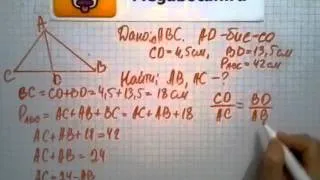 Megabotan.ru
A
C D B
Дано: △ABC. AD - бис-са
CD = 4,5 см, BD = 13,5 см
Pавс = 42 см
Найти: AB, AC - ?
BC = CD + BD = 4,5 + 13,5 = 18 см
Pавс = AC + AB + BC = AC + AB + 18
AC + AB + 18 = 42
AC + AB = 24
AC = 24 - AB
CD/AC = BD/AB